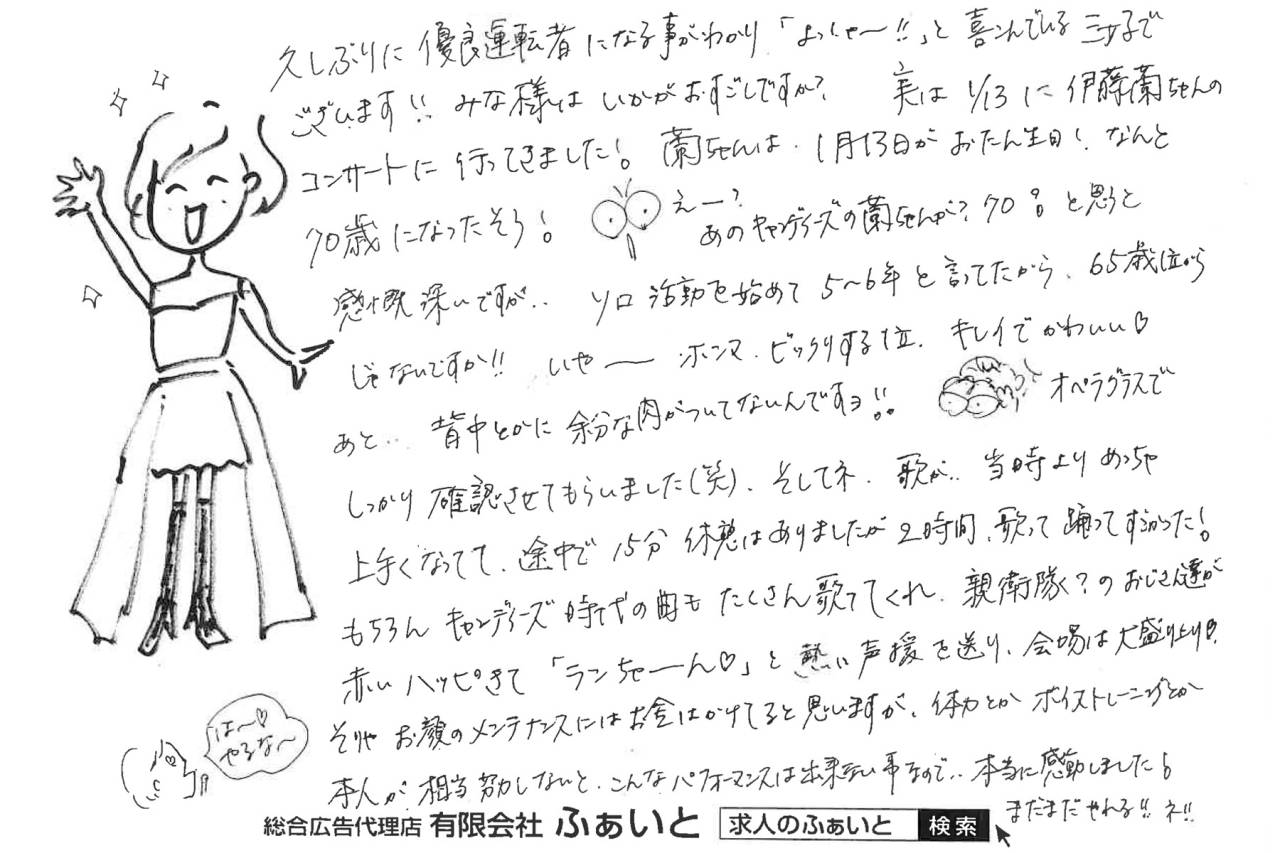 久しぶりに優良運転者になる事がわかり「よっしゃー!!」と喜こんでいるミサ子で
ございます!! みな様はいかがおすごしですか? 実は1/13に伊藤蘭ちゃんの
コンサートに行ってきました! 蘭ちゃんは、1月13日がおたん生日! なんと
70歳になったそう! えー? あのキャンディーズの蘭ちゃんが? 70!? と思うと
感慨深いですが.. ソロ活動を始めて5〜6年と言ってたから、65歳位から
じゃないですか!! いやー ホンマ、ビックリする位、キレイでかわいい♡
あと... 背中とかに余分な肉がついてないんですヨ!! オペラグラスで
しっかり確認させてもらいました(笑)、そしてネ、歌が.. 当時よりめっちゃ
上手くなってて、途中で15分休憩はありましたが2時間、歌って踊ってすごかった!
もちろんキャンディーズ時代の曲もたくさん歌ってくれ、親衛隊?のおじさん達が
赤いハッピきて「ランちゃーん♡」と熱い声援を送り、会場は大盛り上り♡
そりゃお顔のメンテナンスにはお金はかけてると思いますが、体力とかボイストレーニングとか
本人が相当努力しないと、こんなパフォーマンスは出来ない事なので.. 本当に感動しました!
まだまだやれる!! ネ!!
は〜♡
やるな〜
総合広告代理店 有限会社 ふぁいと 求人のふぁいと 検索